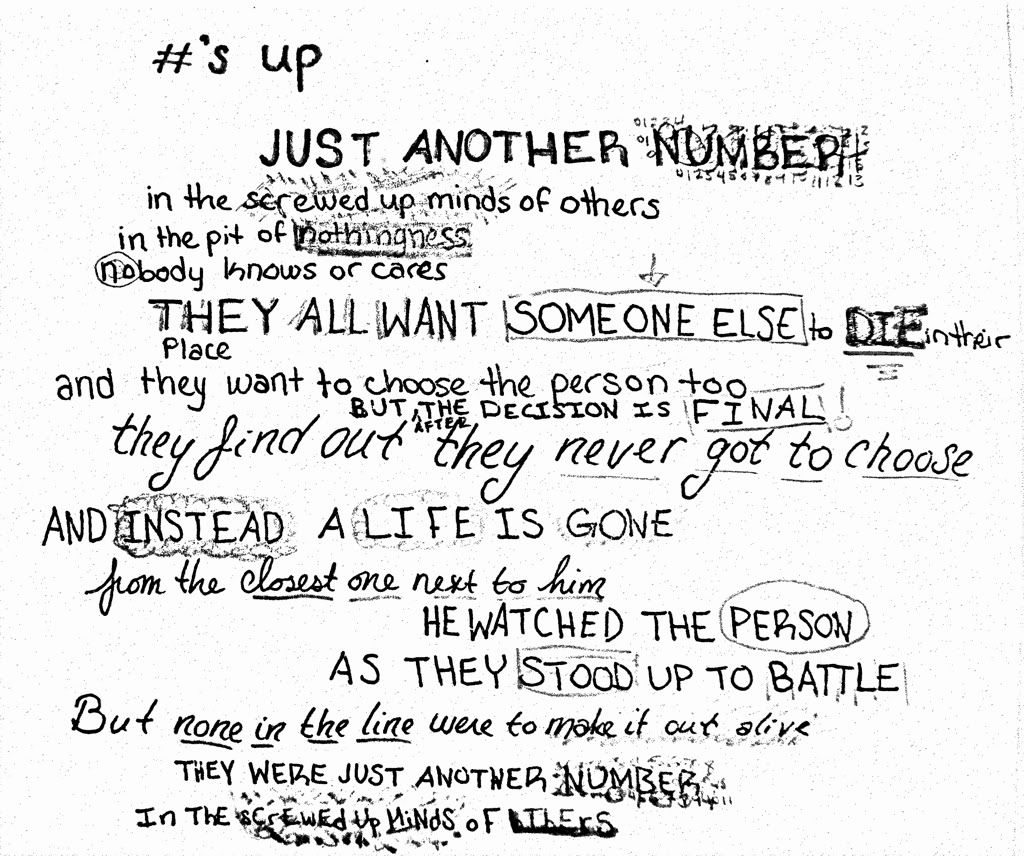 #'s up
JUST ANOTHER NUMBER
in the screwed up minds of others
in the pit of nothingness
nobody knows or cares
THEY ALL WANT SOMEONE ELSE to DIE in their
Place
and they want to choose the person too
BUT AFTER THE DECISION IS FINAL!
they find out they never got to choose
AND INSTEAD A LIFE IS GONE
from the closest one next to him
HE WATCHED THE PERSON
AS THEY STOOD UP TO BATTLE
But none in the line were to make it out alive
THEY WERE JUST ANOTHER NUMBER
In THE screwed up MiNdS oF OTHerS